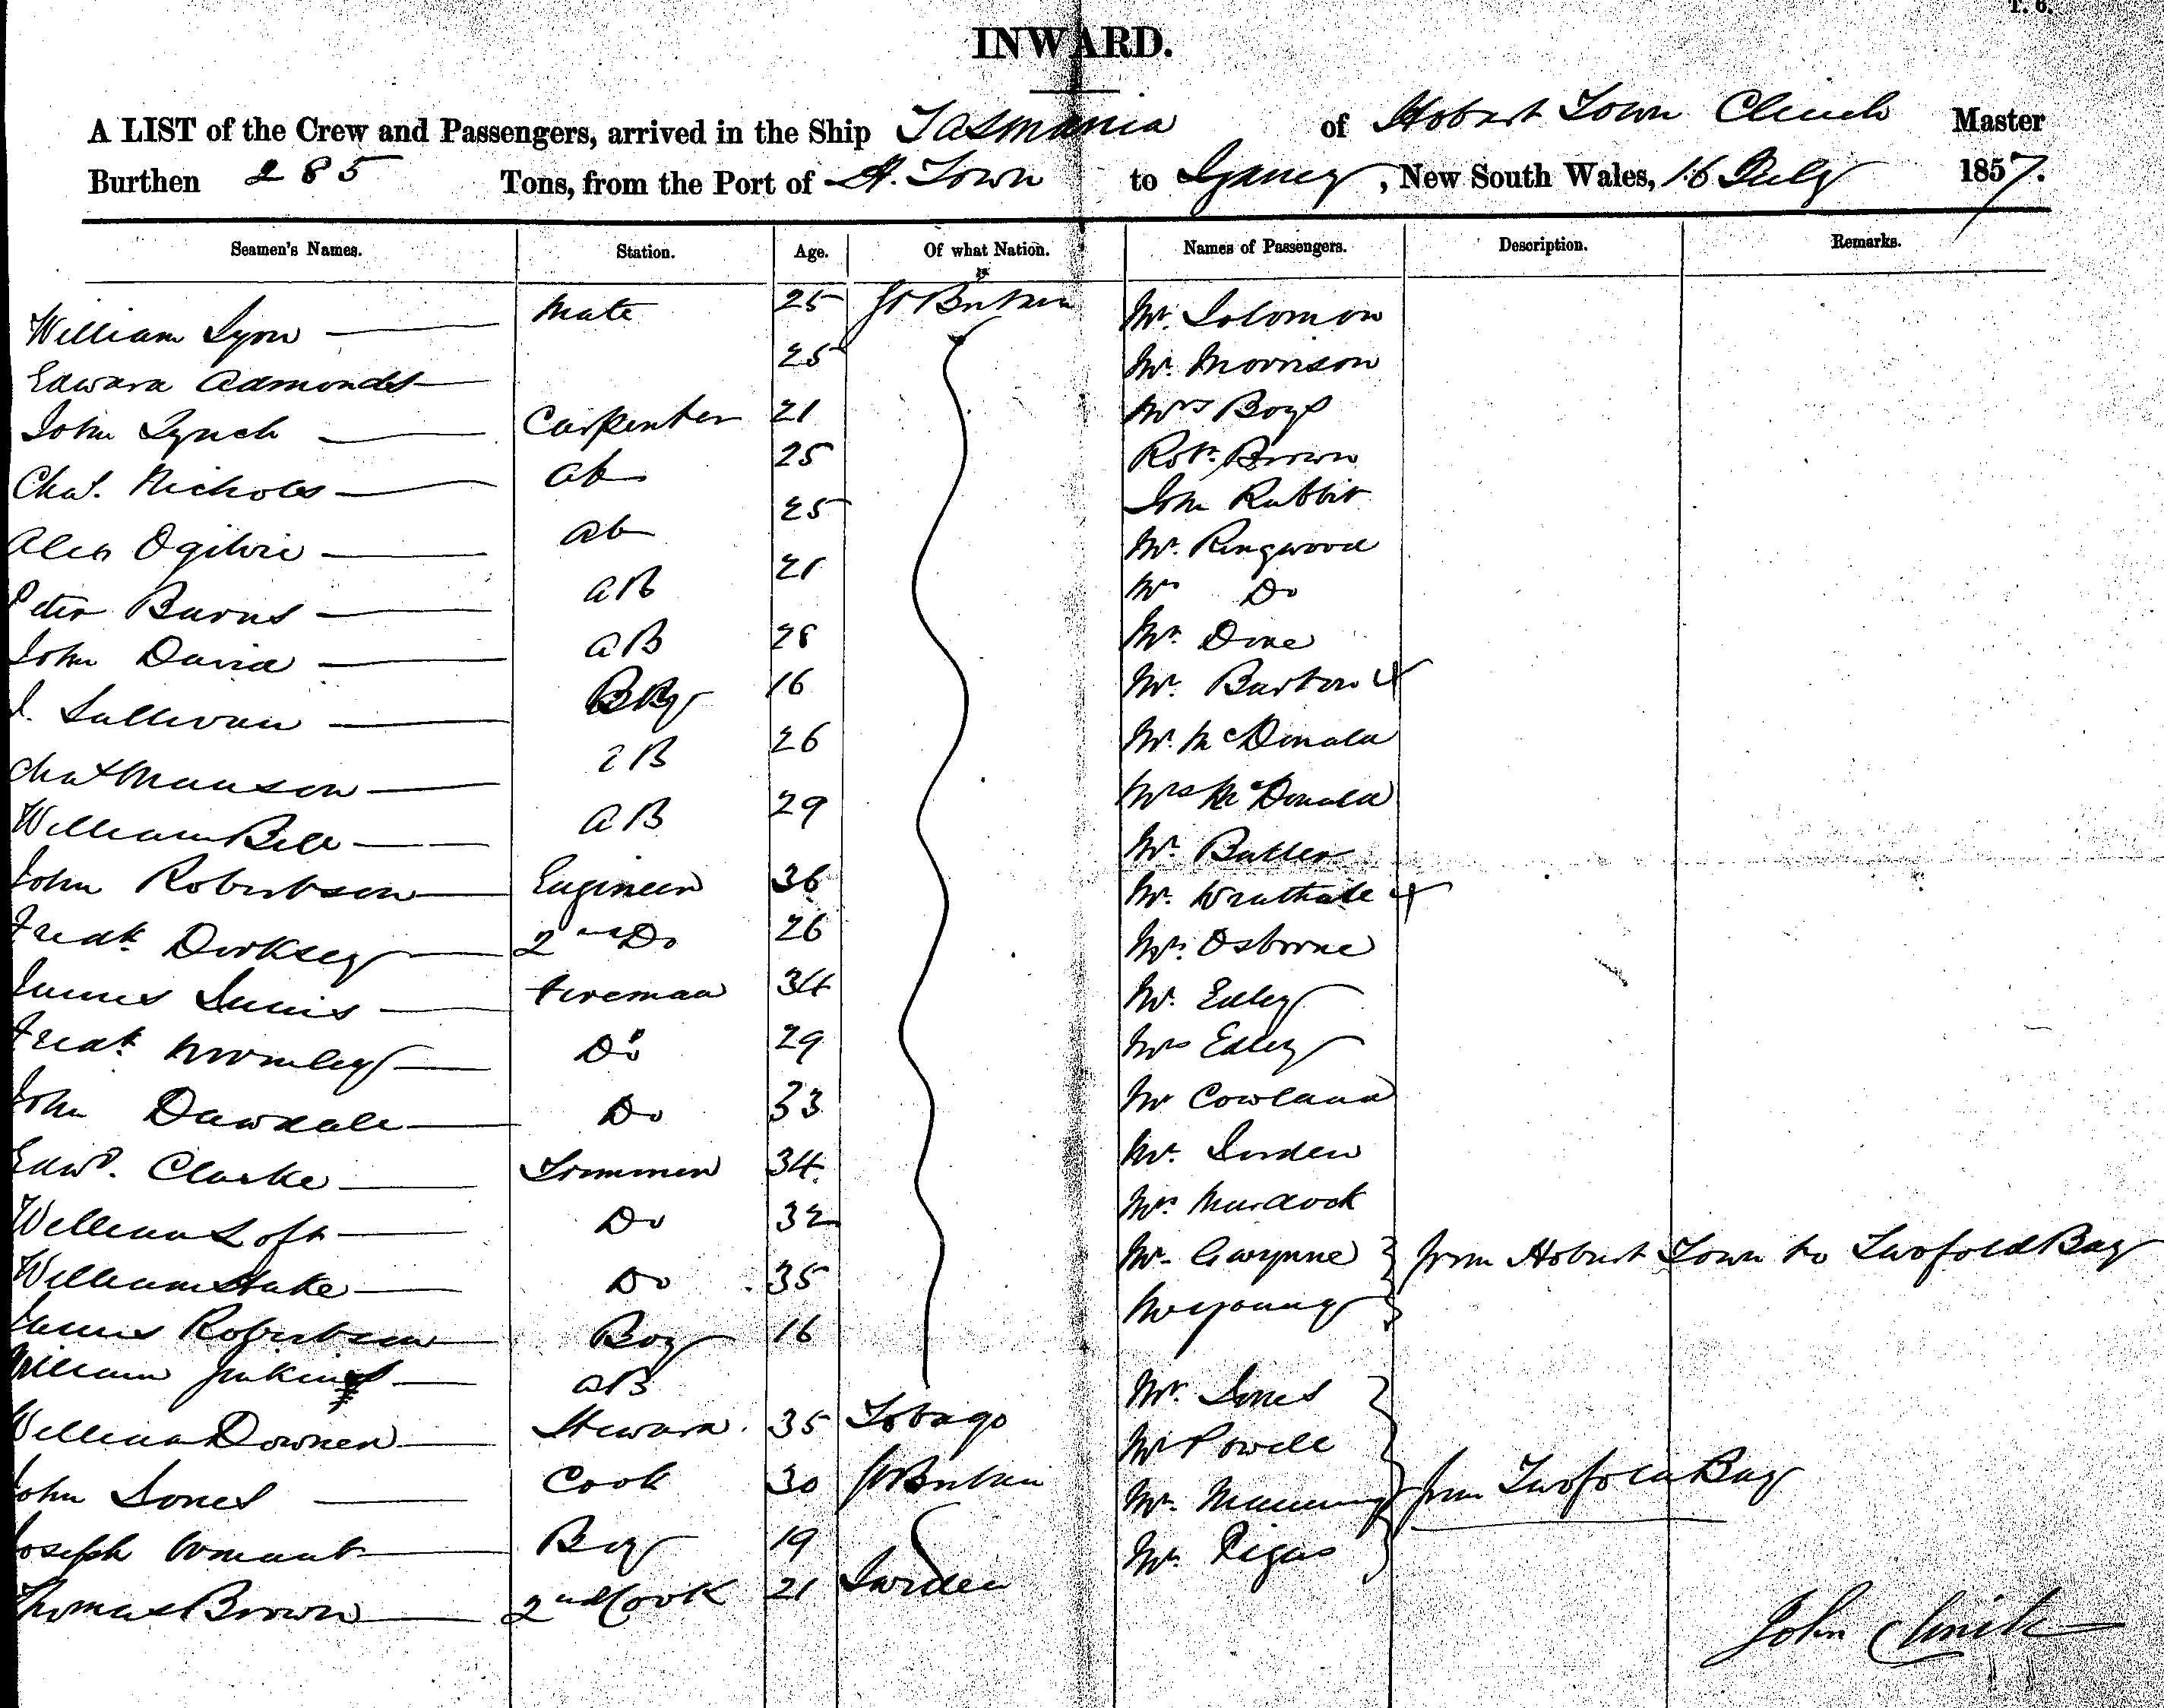 T. 6.
INWARD.
A LIST of the Crew and Passengers, arrived in the Ship Tasmania of Hobart Town Clinch Master
Burthen 285 Tons, from the Port of H. Town to Sydney, New South Wales, 16 July 1857.
Seamen's Names. Station. Age. Of what Nation. Names of Passengers. Description. Remarks.
William Lyon Mate 25 Gt Britain Mr. Solomon
Edward Admonds 25 Mr. Morrison
John Lynch Carpenter 21 Mrs Boys
Chas. Nicholes ab 25 Robt. Brown
Alex Ogilvie ab 25 John Rabbit
Peter Burns AB 21 Mr. Ringwood
John David AB 28 Mrs Do
J. Sullivan Boy 16 Mr. Dove
Chas Manson AB 26 Mr. Burton
William Bell AB 29 Mr. McDonald
John Robertson Engineer 36 Mrs McDonald
Fredk Dirksey 2nd Do 26 Mr. Butler
James Fireman 34 Mr. Wrathall
Fredk Wormley Do 29 Mr. Osborne
John Dawdale Do 33 Mr. Edley
Edwd. Clarke Trimmer 34 Mrs Edley
William Loft Do 32 Mr Cowland
William Hake Do 35 Mr.
James Robertson Boy 16 Mrs Murdock
William Jenkins AB Mr. Gwynne from Hobart Town to Twofold Bay
William Downer Steward 35 Tobago Mr Young
John Jones Cook 30 Gt Britain Mr. Jones
Joseph Boy 19 Mr Powell
Thomas Brown 2nd Cook 21 Sweden Mr. Manning from Twofold Bay
Mr.
John Clinch